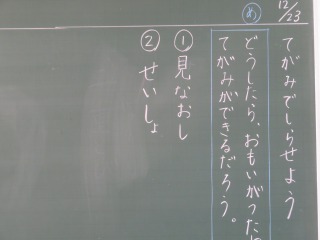 12/23
てがみでしらせよう
め
どうしたら、おもいがつた
てがみができるだろう。
① 見なおし
② せいしょ